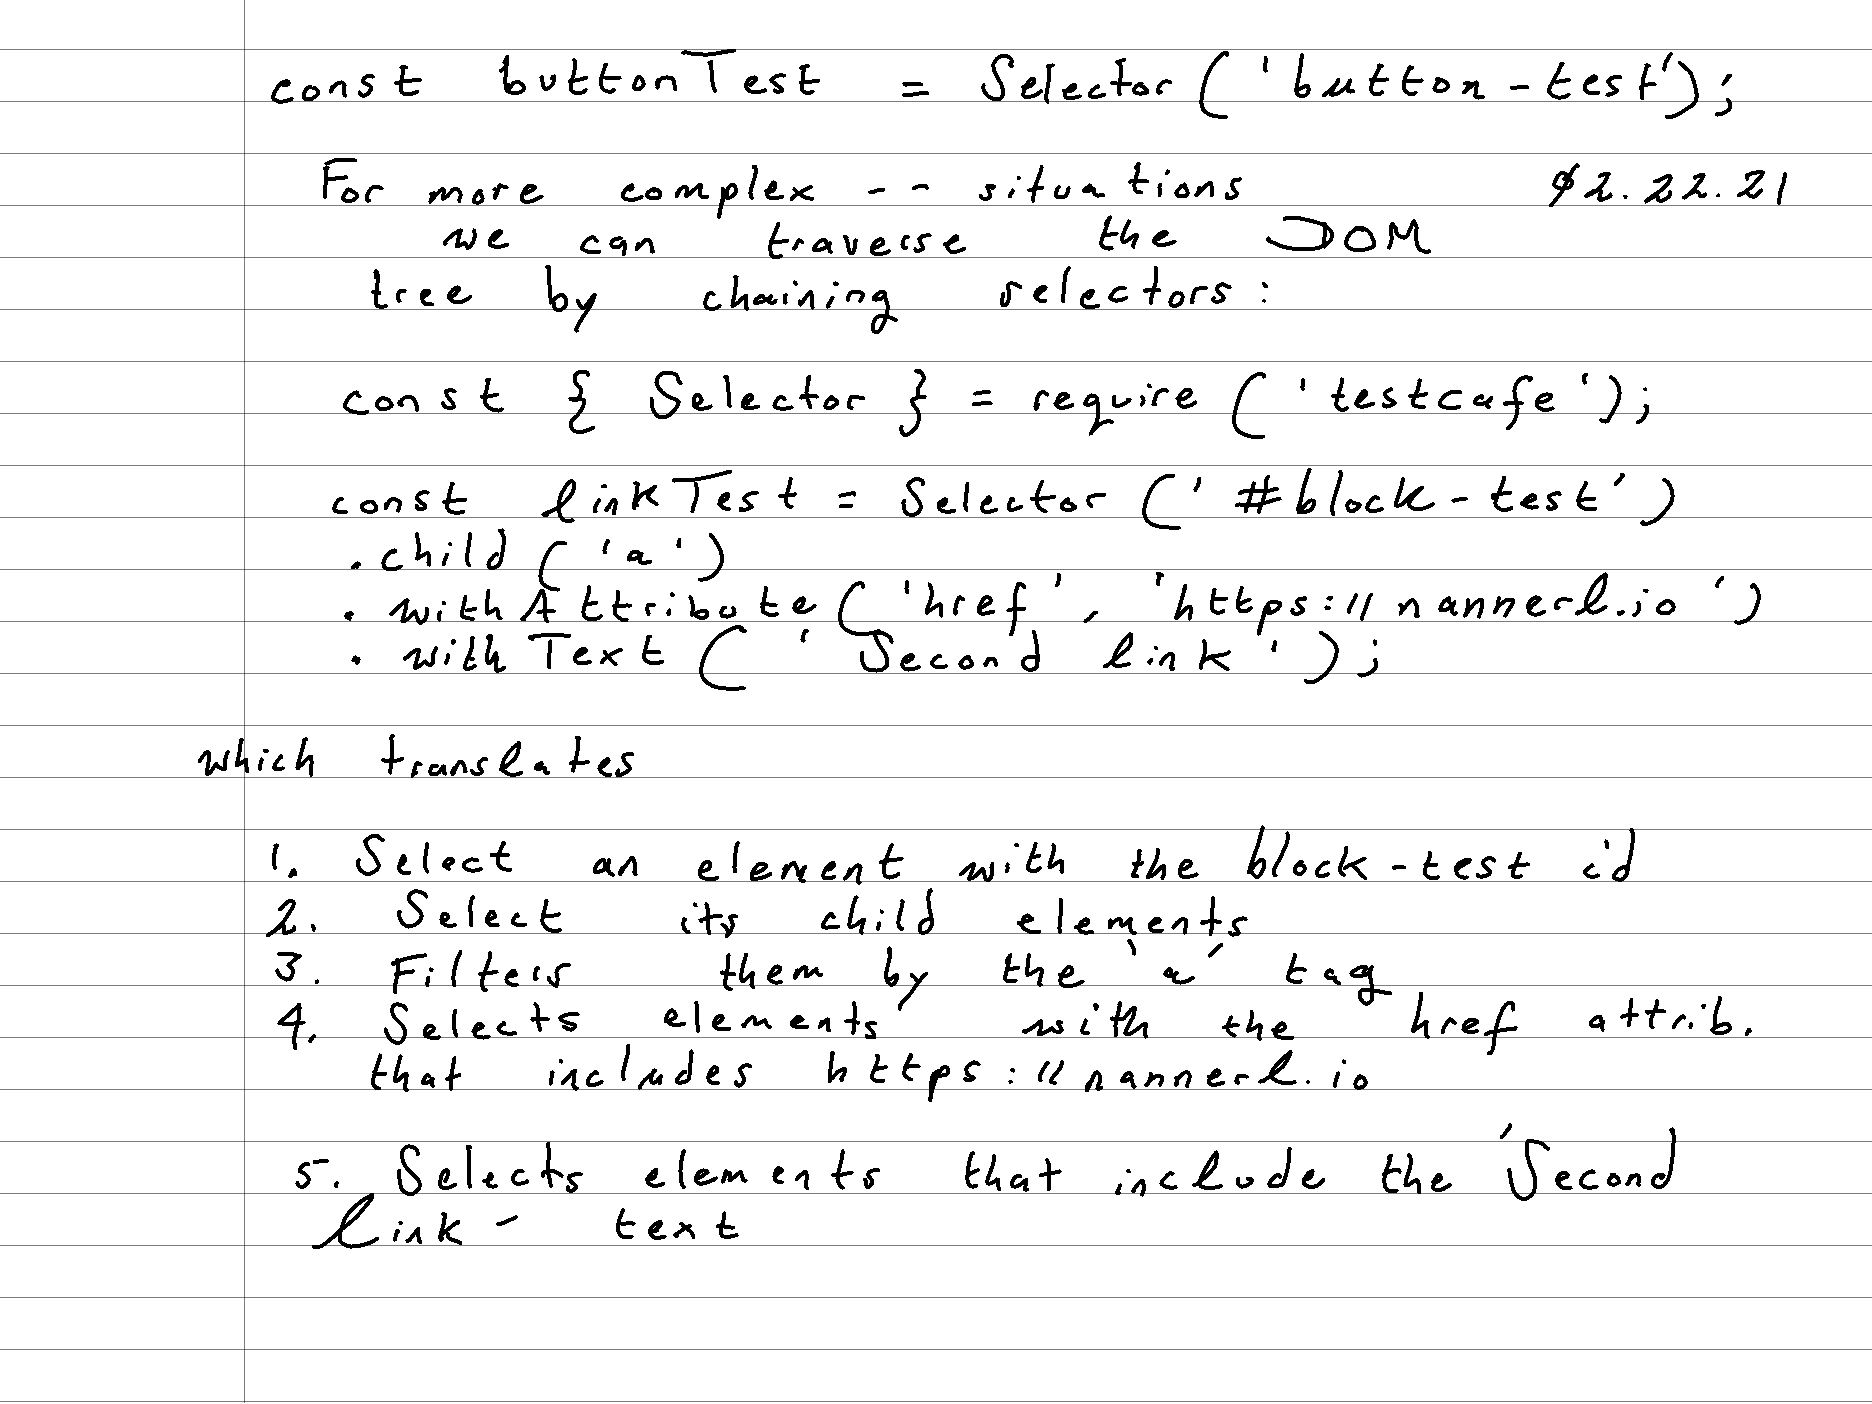 const buttonTest = Selector('button-test');
For more complex -- situations 02.22.21
we can traverse the DOM
tree by chaining selectors:
const { Selector } = require('testcafe');
const linkTest = Selector('#block-test')
.child('a')
.withAttribute('href', 'https://nannerl.io')
.withText('Second link');
which translates
1. Select an element with the block-test id
2. Select its child elements
3. Filters them by the 'a' tag
4. Selects elements with the href attrib.
that includes https://nannerl.io
5. Selects elements that include the 'Second
link - text